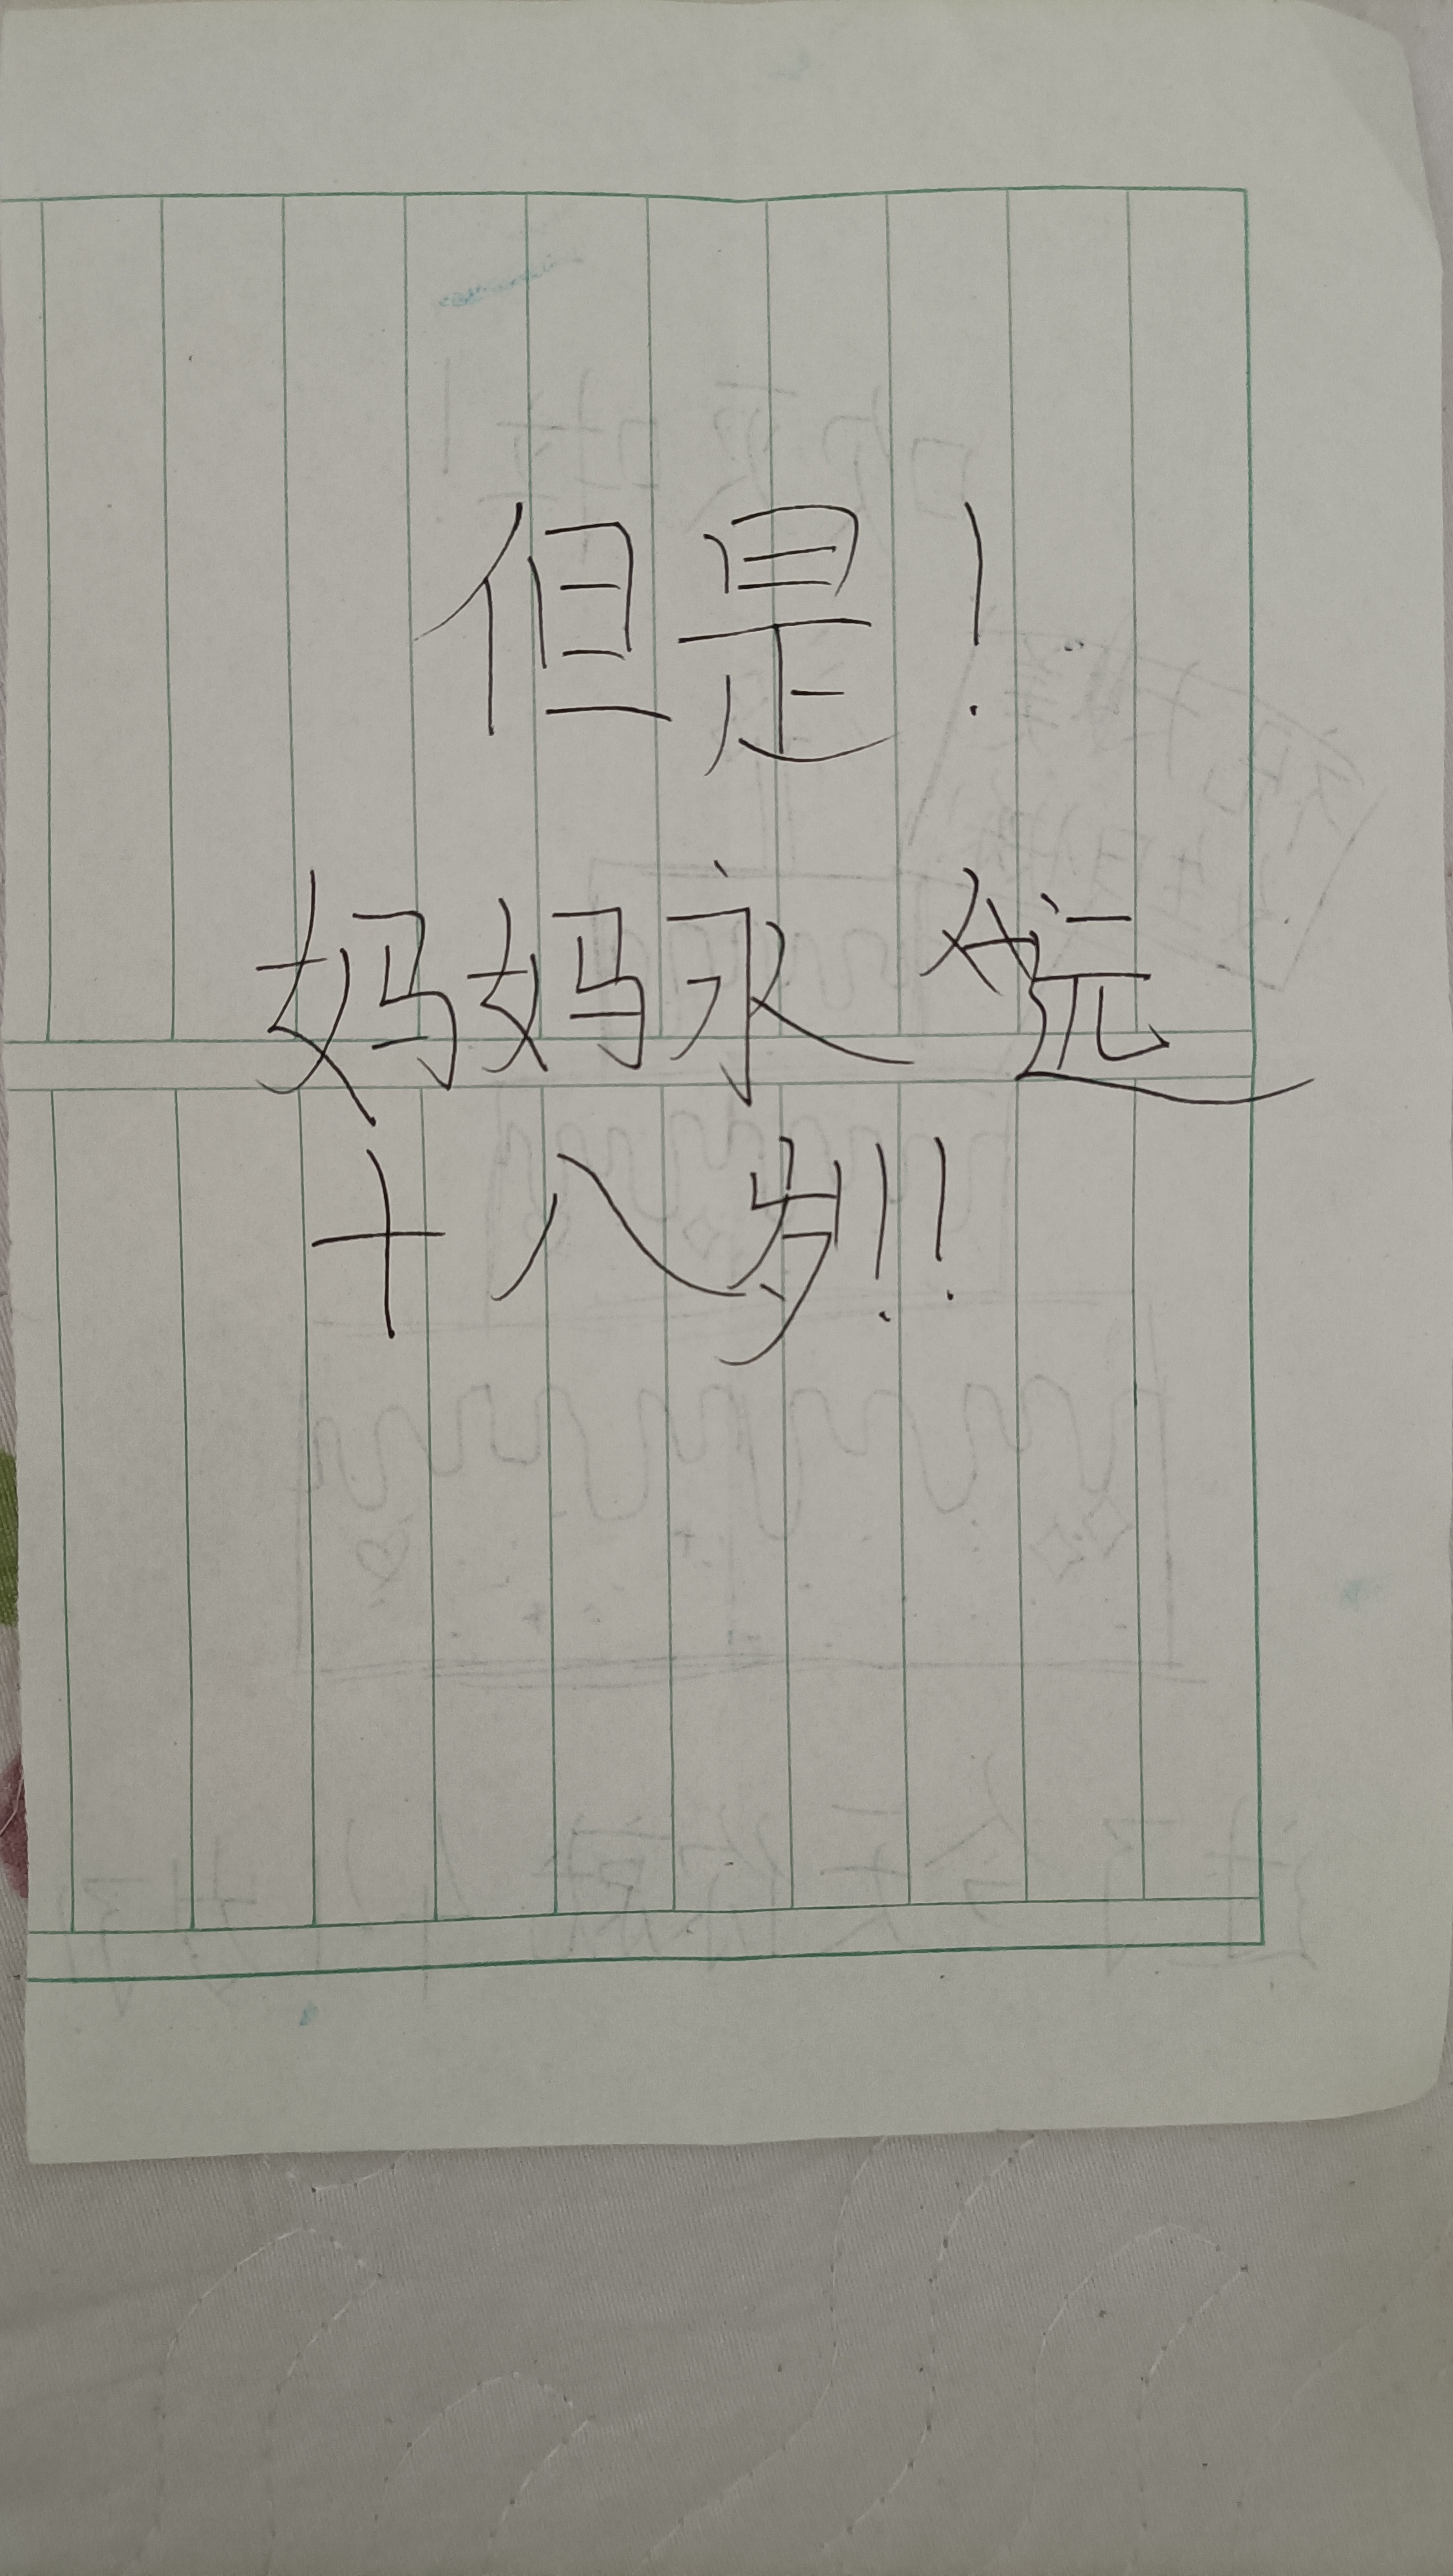 但是！
妈妈永远
十八岁！！